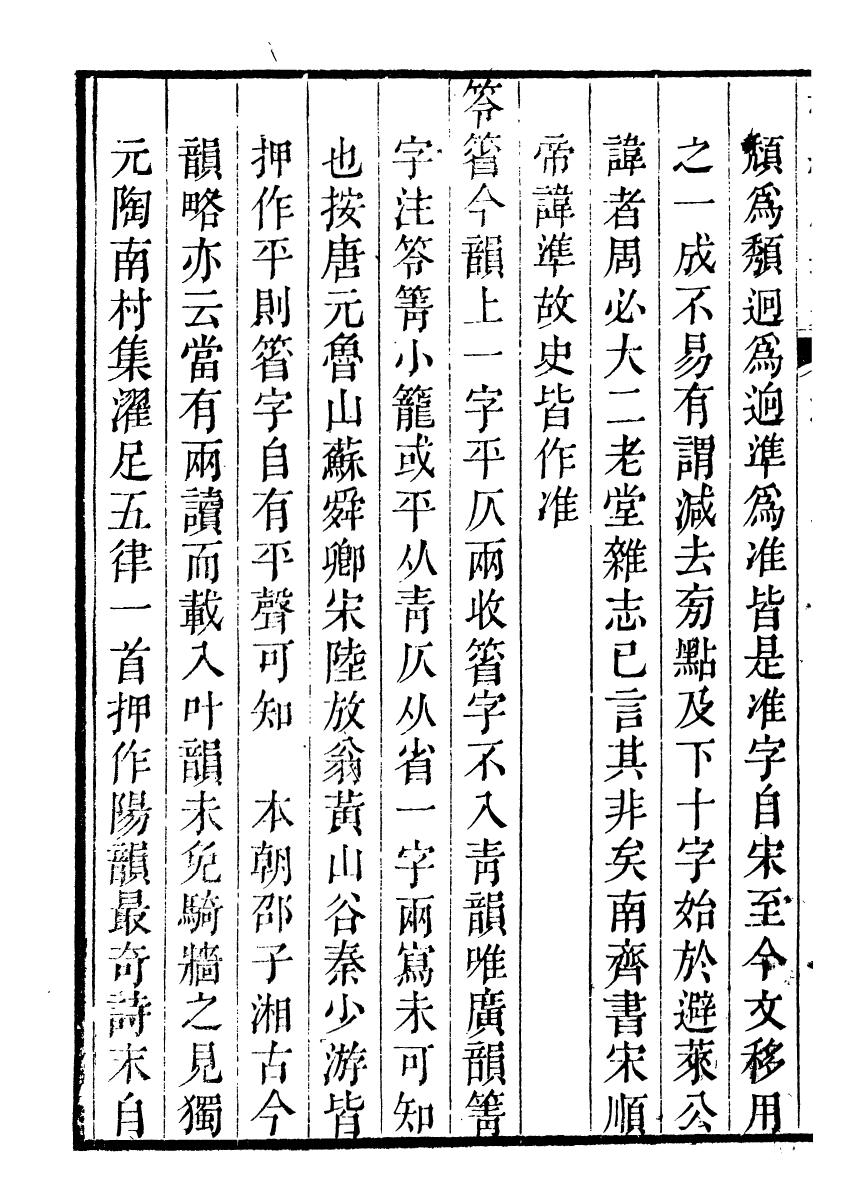 頽爲頺迥爲逈準爲准皆是准字自宋至今文移用
之一成不易有謂減去旁點及下十字始於避萊公
諱者周必大二老堂雜志已言其非矣南齊書宋順
帝諱準故史皆作准
笭箵今韻上一字平仄兩收箵字不入靑韻唯廣韻箐
字注笭箐小籠或平从靑仄从省一字兩寫未可知
也按唐元魯山蘇舜卿宋陸放翁黃山谷秦少游皆
押作平則箵字自有平聲可知　本朝邵子湘古今
韻略亦云當有兩讀而載入叶韻未免騎牆之見獨
元陶南村集濯足五律一首押作陽韻最奇詩末自